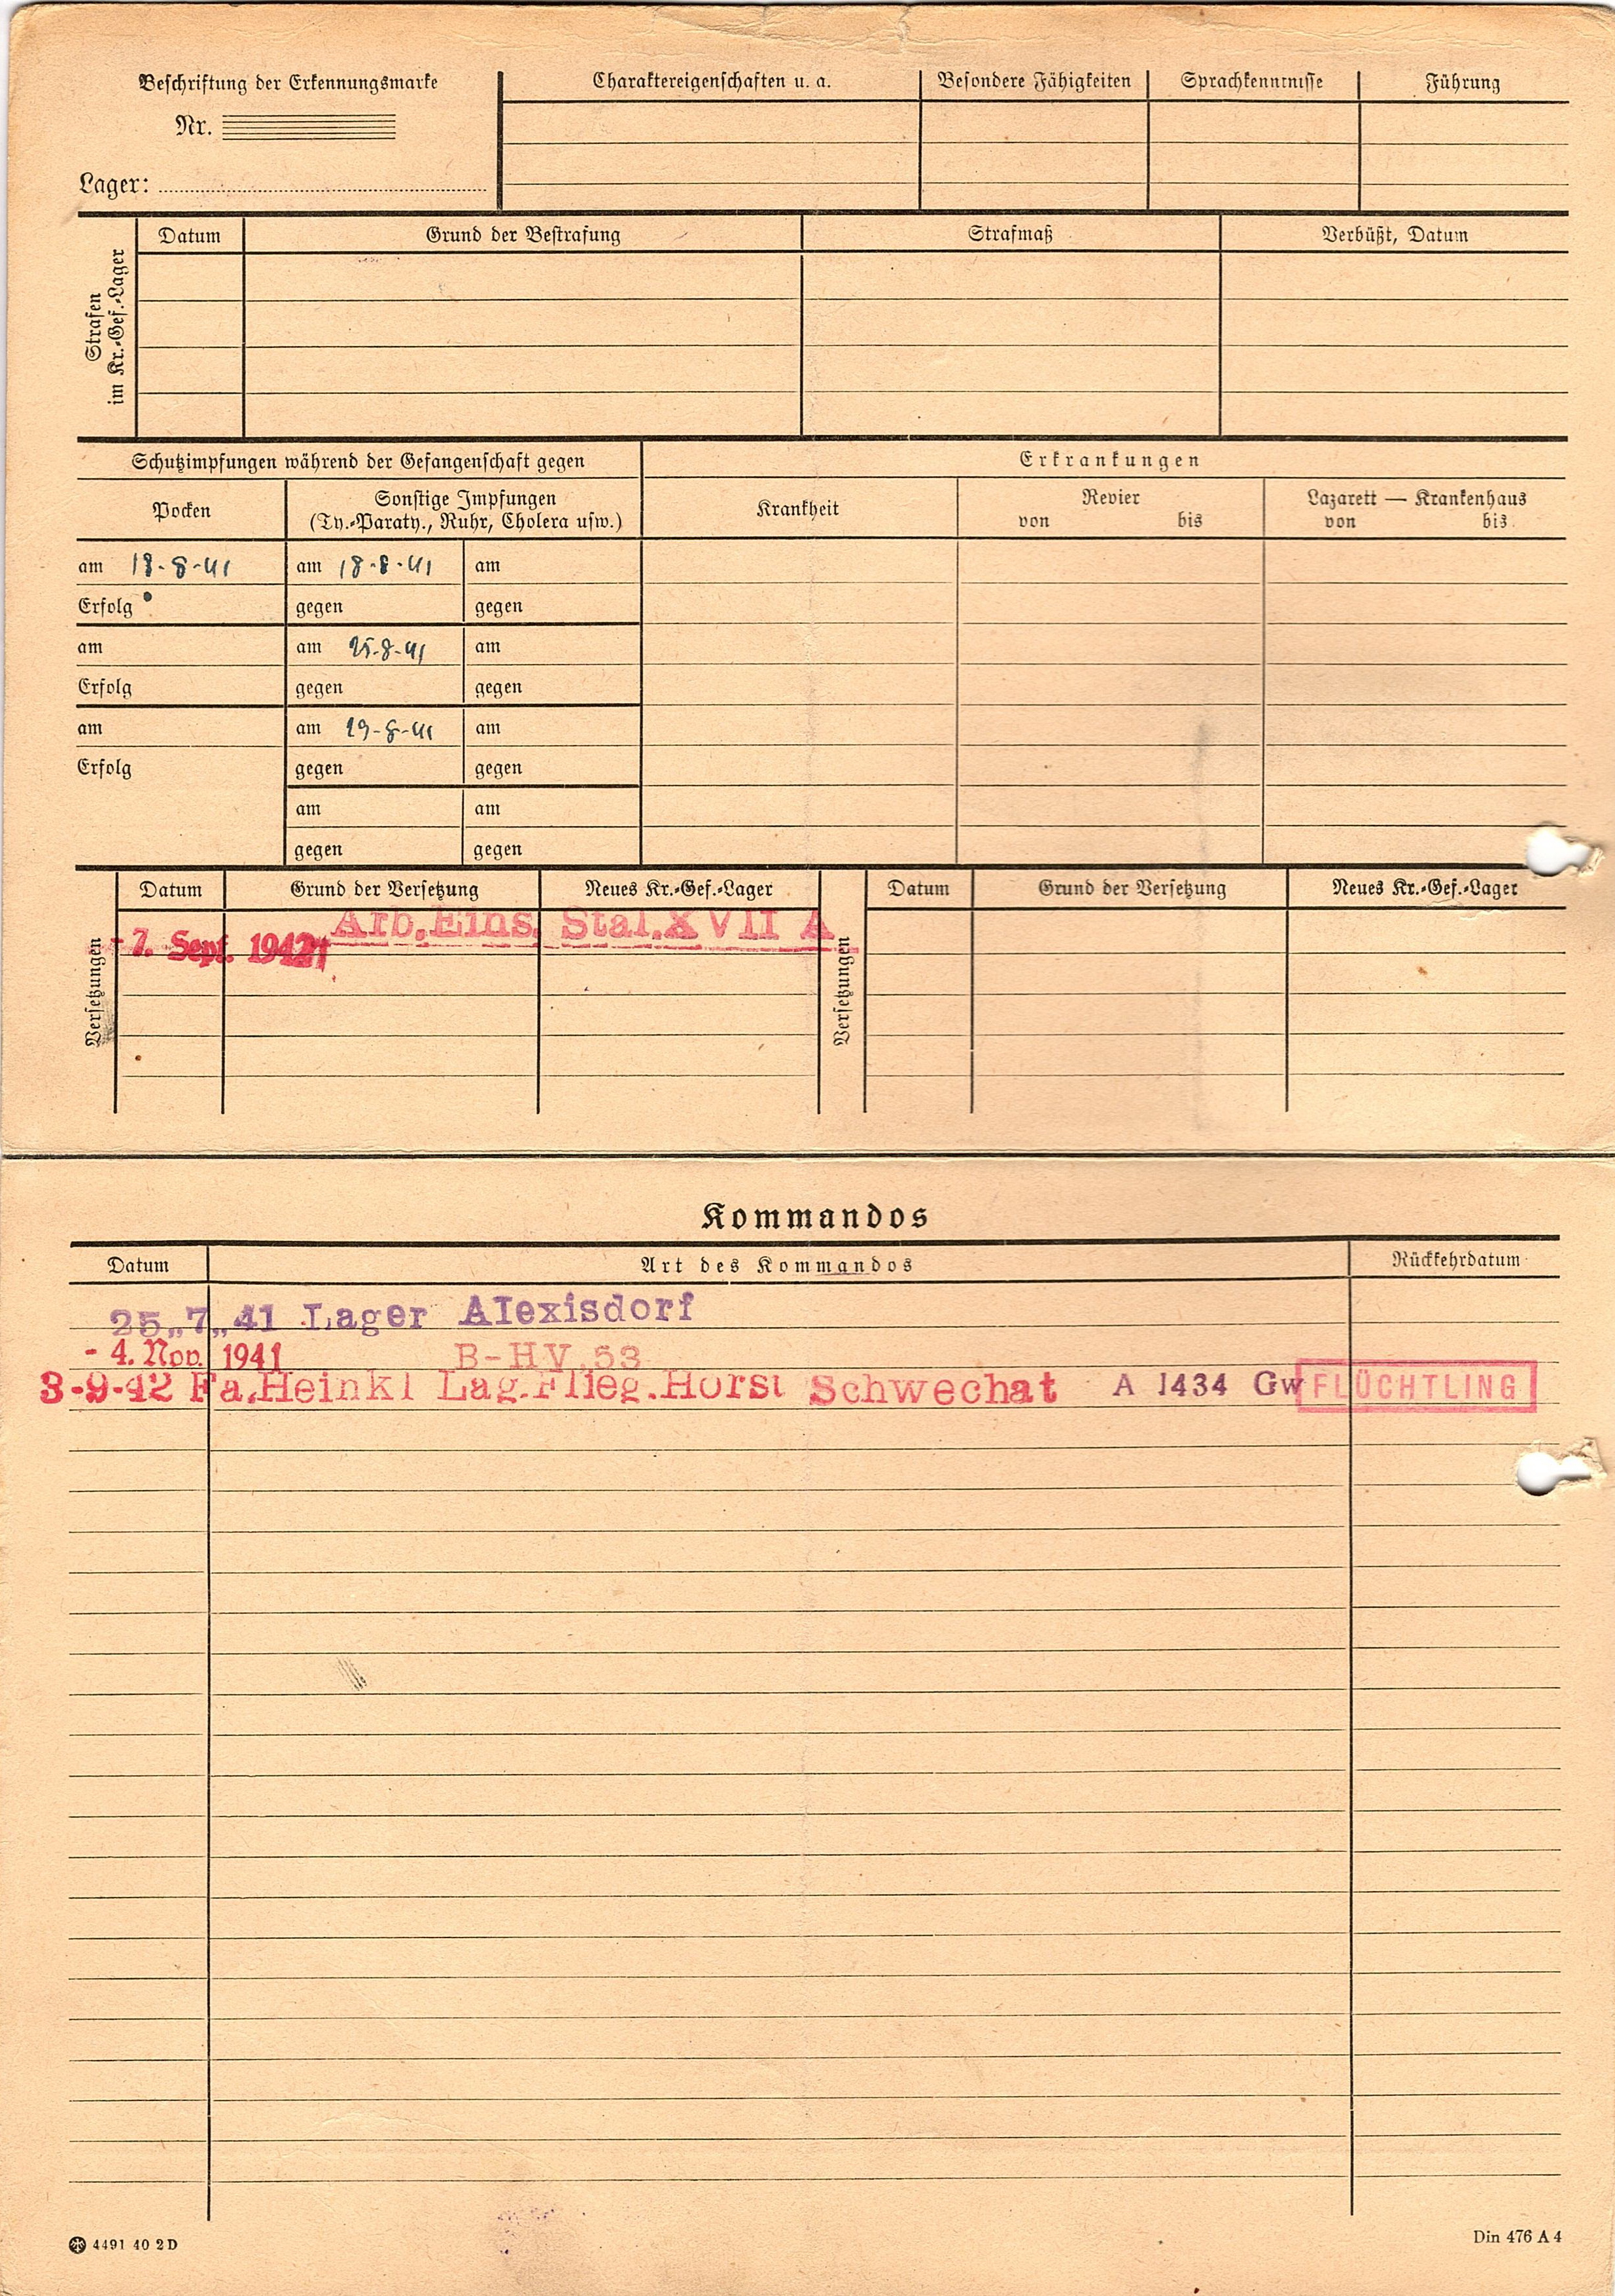 Beschriftung der Erkennungsmarke
Nr.
Lager:
Charaktereigenschaften u. a. Besondere Fähigkeiten Sprachkenntnisse Führung
Strafen
im Kr.-Gef.-Lager
Datum Grund der Bestrafung Strafmaß Verbüßt, Datum
Schutzimpfungen während der Gefangenschaft gegen
Erkrankungen
Pocken
Sonstige Impfungen
(Ty.-Paraty., Ruhr, Cholera usw.)
Krankheit
Revier
von bis
Lazarett — Krankenhaus
von bis
am 18-8-41 am 18-8-41 am
Erfolg gegen gegen
am am 25-8-41 am
Erfolg gegen gegen
am am 29-8-41 am
Erfolg gegen gegen
am am
gegen gegen
Versetzungen
Datum Grund der Versetzung Neues Kr.-Gef.-Lager
Arb.Eins. Stal.XVII A
-7. Sept. 1942
Versetzungen
Datum Grund der Versetzung Neues Kr.-Gef.-Lager
Kommandos
Datum Art des Kommandos Rückkehrdatum
25„7„41 Lager Alexisdorf
- 4. Nov. 1941 B-HV.53
3-9-42 Fa.Heinkl Lag.Flieg.Horst Schwechat A 1434 Gw FLÜCHTLING
4491 40 2 D
Din 476 A 4